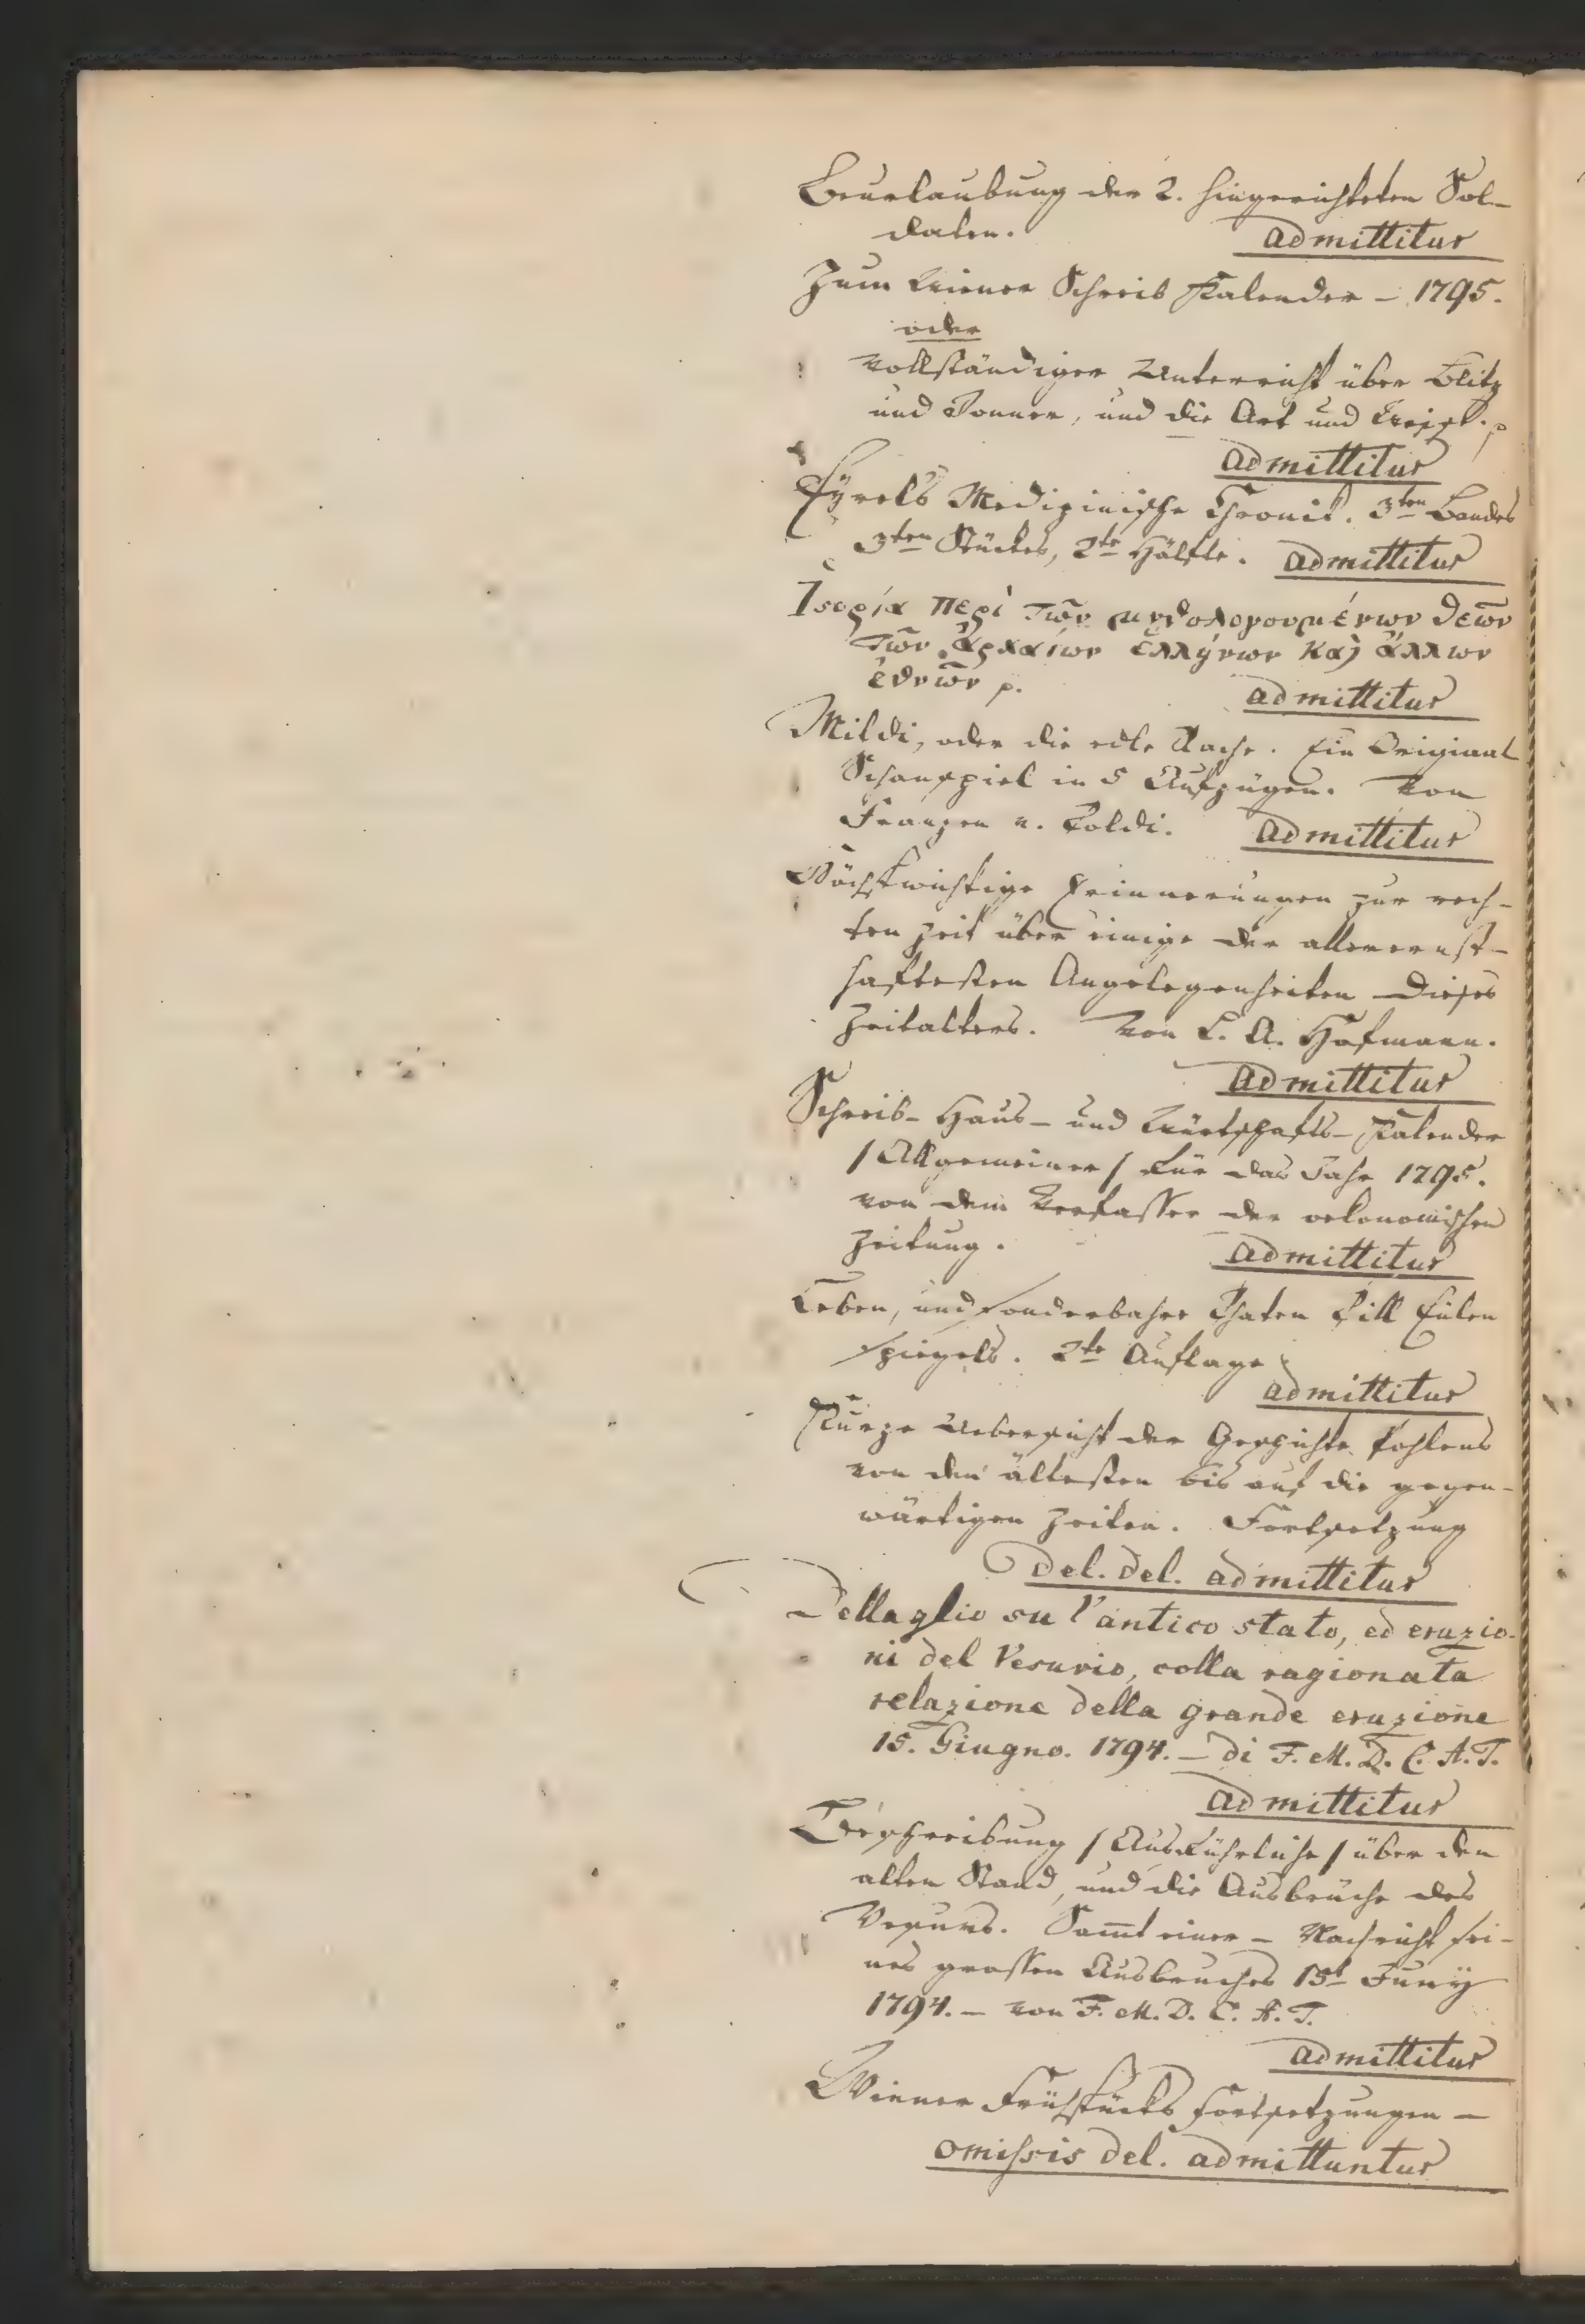 Beurlaubung der 2. hingerichteten Sol-
daten. admittitur
Zum Wiener Schreib Kalender – 1795.
oder
vollständiger Unterricht über Blitz
und Donner, und die Art und Weise. p
admittitur
Eyrels Medizinische Chronik. 3ten Bandes
3ten Stückes, 2te Hälfte. admittitur
Ἱςορία περὶ τῶν μυθολογουμένων θεῶν
τῶν ἀρχαίων ἑλλήνων καὶ ἄλλων
ἐθνῶν p. admittitur
Mildi, oder die edle Rache. Ein Original
Schauspiel in 5 Aufzügen. Von
Franzen v. Poldi. admittitur
Höchstwichtige Erinnerungen zur rech-
ten Zeit über einige der allerernst-
haftesten Angelegenheiten dieses
Zeitalters. Von L. A. Hofmann.
admittitur
Schreib- Haus- und Würtschafts- Kalender
/ Allgemeiner / für das Jahr 1795.
von dem Verfasser der oekonomischen
Zeitung. admittitur
Leben, und sonderbahre Thaten Till Eulen
spiegels. 2te Auflage
admittitur
Kurze Uebersicht der Geschichte Pohlens
von den ältesten bis auf die gegen-
wärtigen Zeiten. Fortsetzung
del. del. admittitur
Dettaglio su l'antico stato, ed eruzio-
ni del Vesuvio, colla ragionata
relazione della grande eruzione
15. Giugno. 1794. – di F. M. D. C. A. T.
admittitur
Beschreibung / Ausführliche / über den
alten Stand, und die Ausbrüche des
Vesuvs. Sammt einer – Nachricht sei-
nes grossen Ausbruches 15t Juny
1794. – von F. M. D. C. A. T.
admittitur
Wiener Frühstücks Fortsetzungen –
omissis del. admittuntur